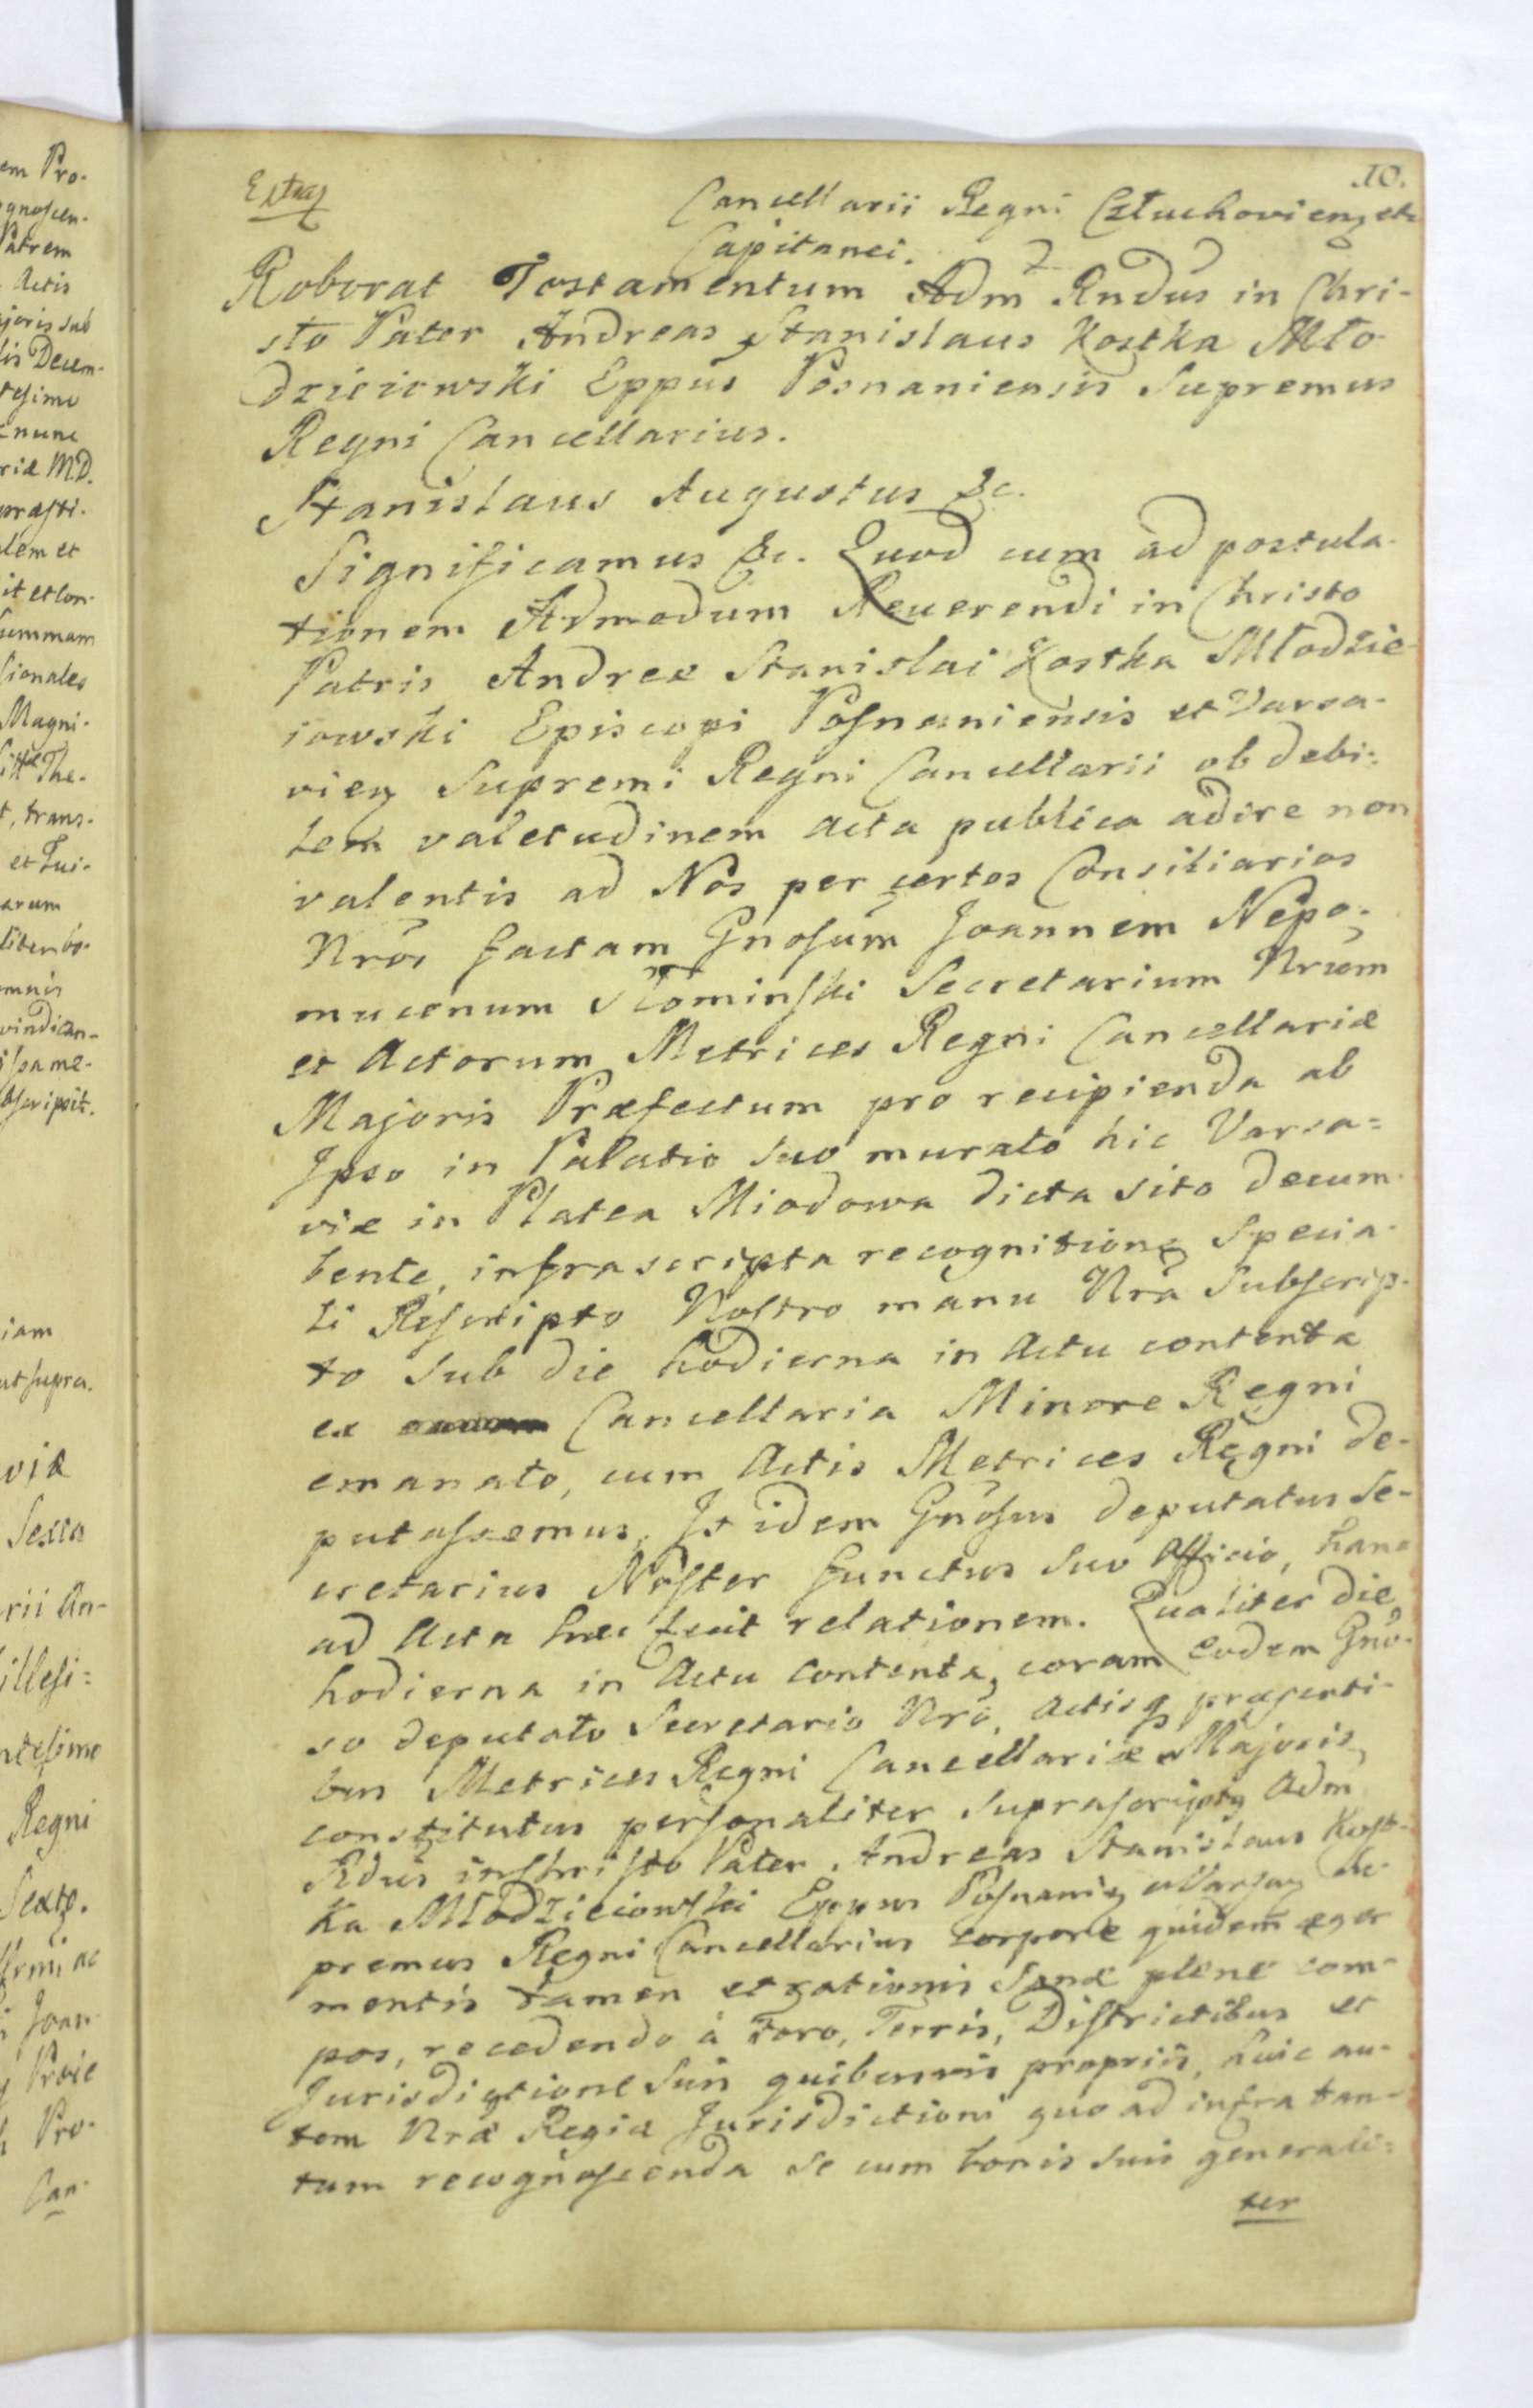 em Pro-
gnoscen-
Patrem
Actis
joris sub
lis Decem-
tesimo
riæ M.D.
lem et
it et con-
summam
sionales
Magni-
t, trans-
et Tui-
arum
omnis
vindican-
bscripsit.
iam
ut supra.
viæ
Sexta
rii An-
illesi=
ntesimo
Regni
Sexto.
Joan-
Pro-
Can-
10.
Extras
Cancellarii Regni Człuchovienʒ etc
Capitanei.
Roborat Testamentum Adm Rndus in Chri-
sto Pater Andreas Stanislaus Kostka Mło-
dzieiowski Eppus Posnaniensis Supremus
Regni Cancellarius.
Stanislaus Augustus &c.
Significamus &c. Quod cum ad postula-
tionem Admodum Reuerendi in Christo
Patris Andreæ Stanislai Kostka Młodzie-
iowski Episcopi Posnaniensis et Varsa-
vienʒ Supremi Regni Cancellarii ob debi-
lem valetudinem acta publica adire non
valentis ad Nos per certos Consiliarios
Nros factam Gnosum Joannem Nepo-
mucenum Słominski Secretarium Nrum
et Actorum Metrices Regni Cancellariæ
Majoris Præfectum pro recipienda ab
Ipso in Palatio suo murato hic Varsa=
viæ in Platea Miodowa dicta sito decum-
bente, infrascripta recognitione Specia-
li Rescripto Nostro manu Nra Subscrip-
to sub die hodierna in Actu contenta
ex Cancellaria Minore Regni
emanato, cum Actis Metrices Regni de-
putassemus. It idem Gnosus deputatus Se-
cretarius Noster functus suo Officio, hanc
ad Acta hæc fecit relationem. Qualiter die
hodierna in Actu contenta, coram eodem Gno-
so deputato Secretario Nro, Actisq præsenti-
bus Metrices Regni Cancellariæ Majoris
constitutus personaliter suprascriptʒ Adm
Rdus in Christo Pater Andreas Stanislaus Kost-
ka Młodzieiowski Eppus Posnanienʒ et Varsavʒ Su-
premus Regni Cancellarius corpore quidem æger
mentis tamen et rationis sanæ plene com-
pos, recedendo à Foro, Terris, Districtibus et
Jurisdictione suis quibusvis propriis, huic au-
tem Nræ Regiæ Jurisdictioni quo ad infra tan-
tum recognoscenda se cum bonis suis generali=
ter